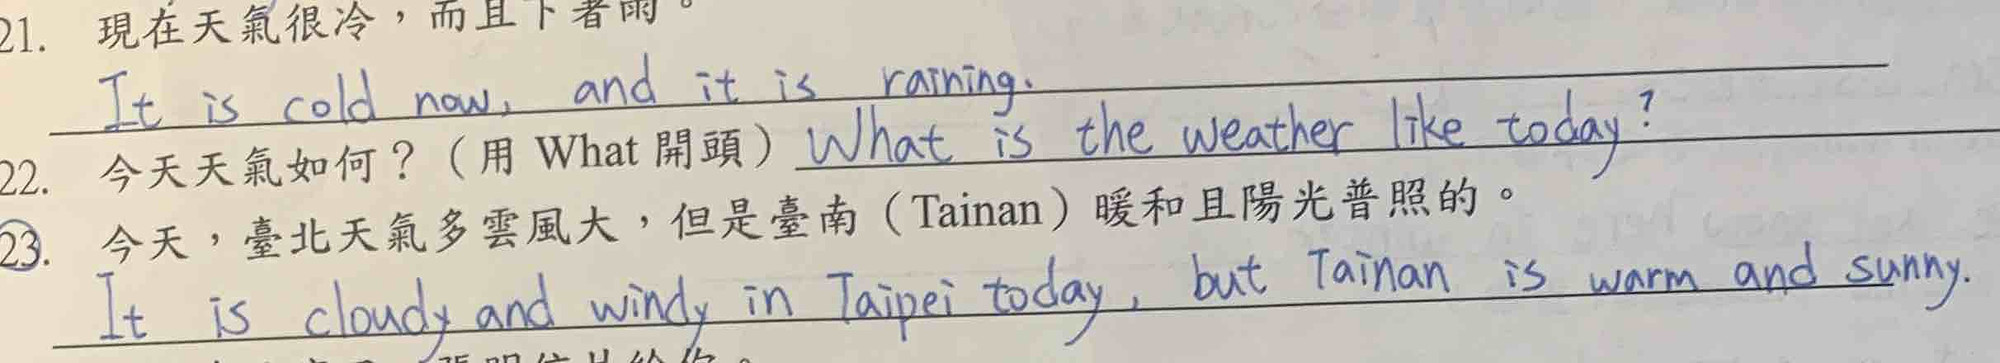 21. 現在天氣很冷，而且下著雨。
It is cold now, and it is raining.
22. 今天天氣如何？（用 What 開頭）What is the weather like today?
23. 今天，臺北天氣多雲風大，但是臺南（Tainan）暖和且陽光普照的。
It is cloudy and windy in Taipei today, but Tainan is warm and sunny.